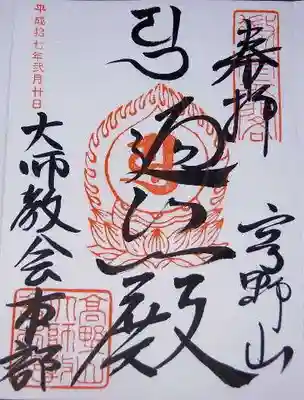 奉拝
高野山
遍照殿
大師教会本部
平成拾七年弐月廿日